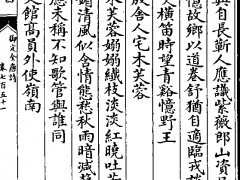 興自長新人應識紫薇郎山資
憶故鄉以道卷舒猶自適臨戎
文橫笛時望青谿憶野王
殷舍人宅木芙蓉
木芙蓉嫋嫋纖枝淡淡紅曉吐
媚清風似含情態愁秋雨暗減
應未稱不知歌管與誰同
館高員外使嶺南
御定全唐詩
卷七百五十一